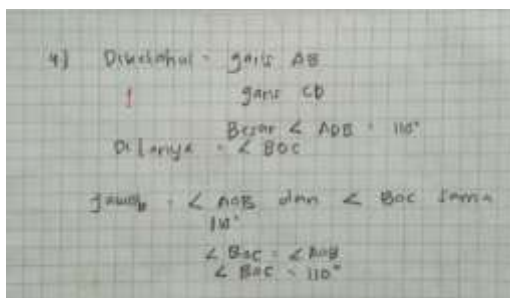 4] Diketahui - garis AB
1 garis CD
Besar ∠ AOB = 110°
Ditanya = ∠ BOC
Jawab = ∠ AOB dan ∠ BOC sama
110°
∠ BOC = ∠ AOB
∠ BOC = 110°